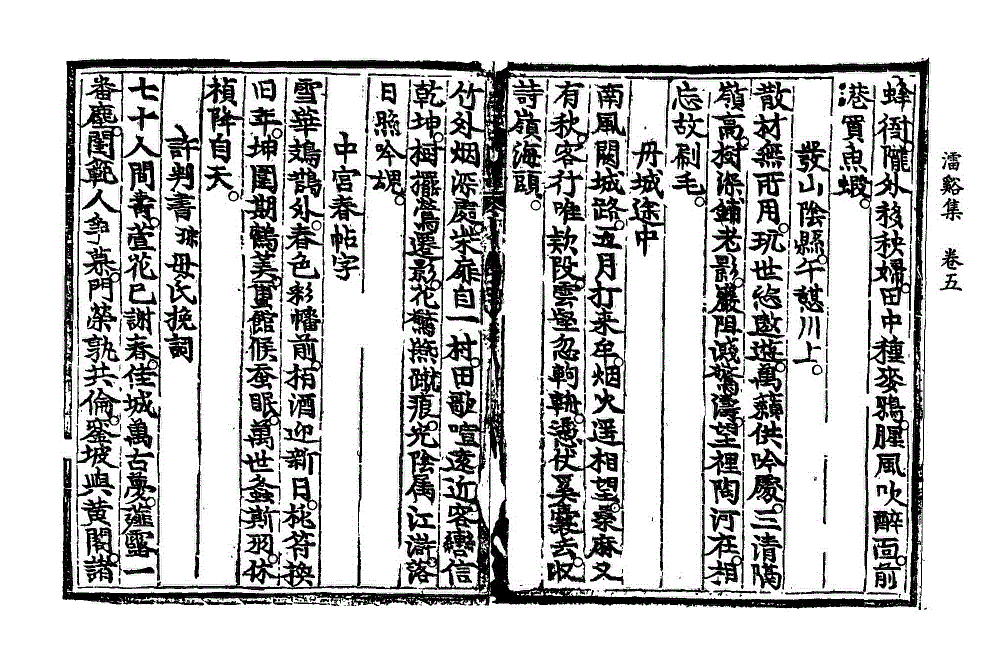 㵢谿集 卷五
蜂衙隴外移秧婦田中種麥鴉腥風吹醉面前
港買魚蝦
發山陰縣午憇川上
散材無所用玩世恣遨遊萬籟供吟處三清隔
嶺高樹深鋪老影巖阻濺驚濤望裡陶河在相
忘故刷毛
丹城途中
南風闕城路五月打来牟烟火遥相望桑麻又
有秋客行唯欵段雲壑忽軥輈憑仗奚囊去収
詩嶺海頭
竹外烟深處柴扉自一村田歌喧遠近客轡信
乾坤樹擺鶯遷影花驚燕蹴痕光陰属江滸落
日縣吟魂
中宮春帖字
雪華鳷鵲外春色彩幡前栢酒迎新日桃符換
旧年坤圍期鶴美蠒館候蚕眠萬世螽斯羽休
禎降自天
許判書琮母氏挽詞
七十人間壽萱花已謝春佳城萬古夢薤露一
番塵閨範人爭慕門榮孰共倫鑾坡與黄閣諸